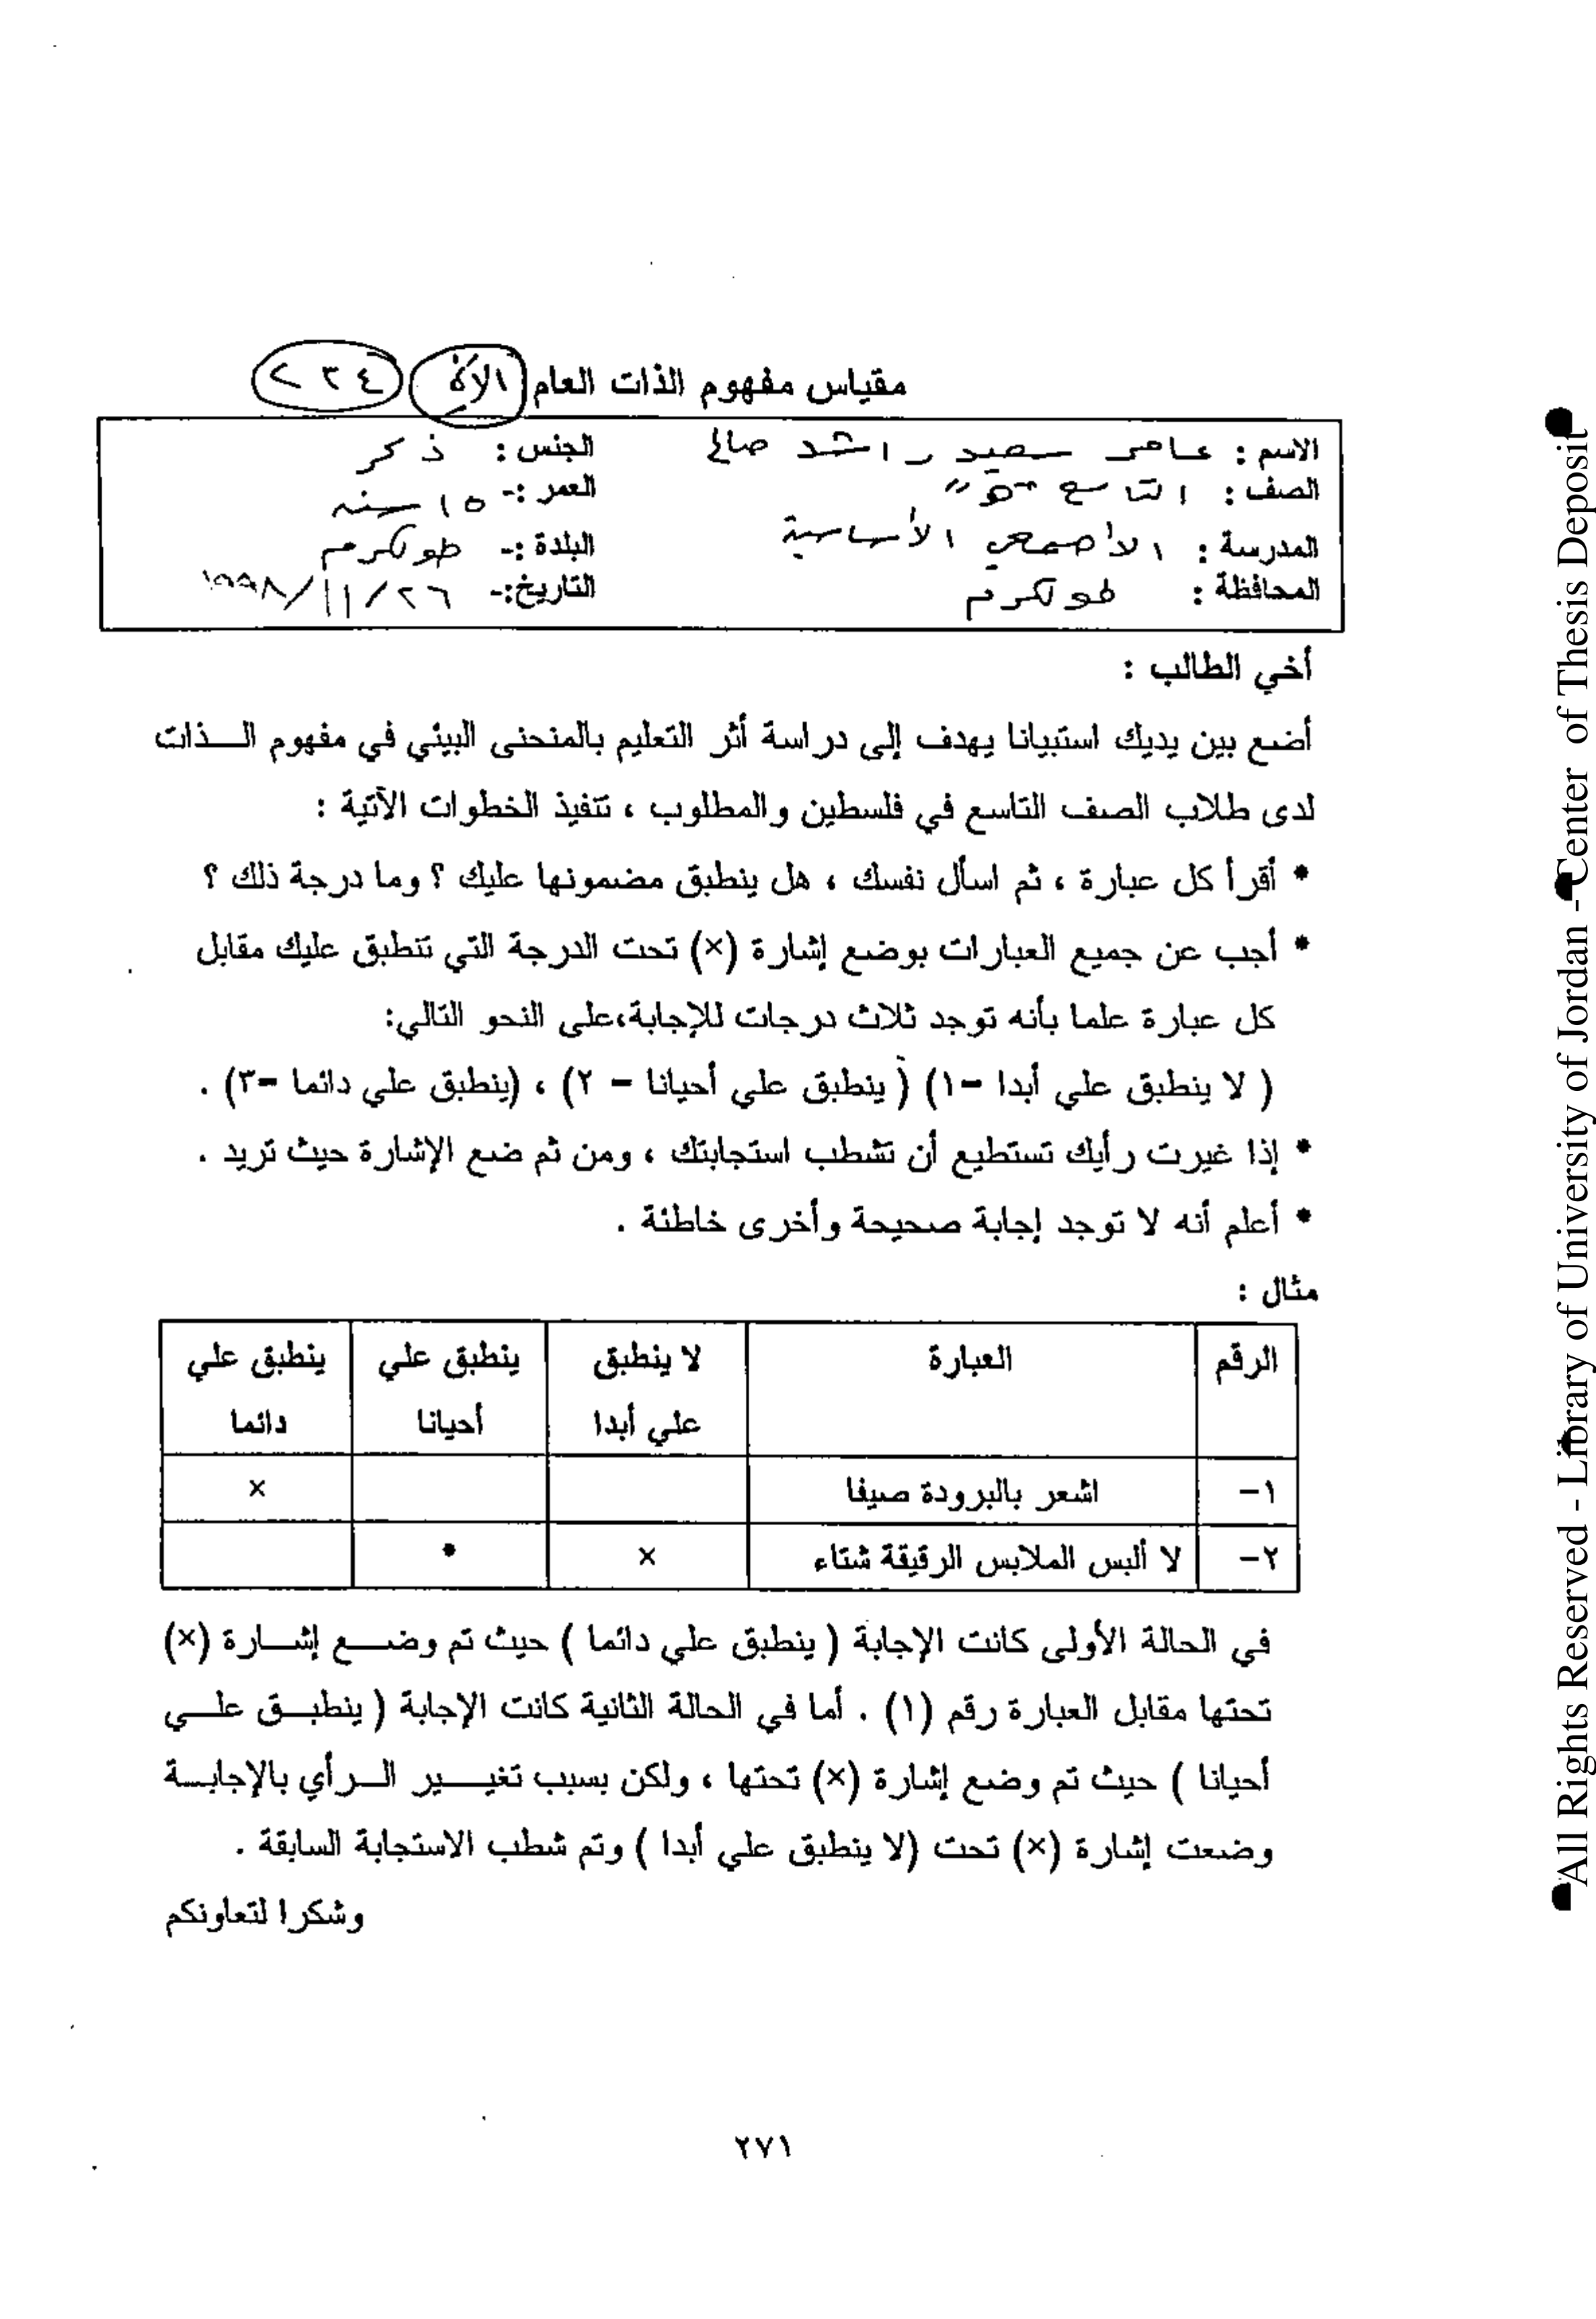 مقياس مفهوم الذات العام ٢٣٤
الاسم : عامر سعيد راشد صالح
الجنس : ذكر
الصف : التاسع
العمر :- ١٥ سنه
المدرسة : الأصمعي الأساسية
البلدة :- طولكرم
المحافظة : طولكرم
التاريخ:- ٢٦/١١/١٩٩٨
أخي الطالب :
أضع بين يديك استبيانا يهدف إلى دراسة أثر التعليم بالمنحنى البيئي في مفهوم الـــذات
لدى طلاب الصف التاسع في فلسطين والمطلوب ، تتفيذ الخطوات الآتية :
* أقرأ كل عبارة ، ثم اسأل نفسك ، هل ينطبق مضمونها عليك ؟ وما درجة ذلك ؟
* أجب عن جميع العبارات بوضع إشارة (×) تحت الدرجة التي تتطبق عليك مقابل
كل عبارة علما بأنه توجد ثلاث درجات للإجابة،على النحو التالي:
( لا ينطبق علي أبدا –١) ( ينطبق علي أحيانا – ٢) ، (ينطبق علي دائما –٣) .
* إذا غيرت رأيك تستطيع أن تشطب استجابتك ، ومن ثم ضع الإشارة حيث تريد .
* أعلم أنه لا توجد إجابة صحيحة وأخرى خاطئة .
مثال :
الرقم العبارة لا ينطبق علي أبدا ينطبق علي أحيانا ينطبق علي دائما
١– اشعر بالبرودة صيفا ×
٢– لا ألبس الملابس الرقيقة شتاء × •
في الحالة الأولى كانت الإجابة ( ينطبق علي دائما ) حيث تم وضـــع إشـــارة (×)
تحتها مقابل العبارة رقم (١) . أما في الحالة الثانية كانت الإجابة ( ينطبـــق علـــي
أحيانا ) حيث تم وضع إشارة (×) تحتها ، ولكن بسبب تغيـــــير الـــرأي بالإجابـــة
وضعت إشارة (×) تحت (لا ينطبق علي أبدا ) وتم شطب الاستجابة السابقة .
وشكرا لتعاونكم
٢٧١
All Rights Reserved - Library of University of Jordan - Center of Thesis Deposit